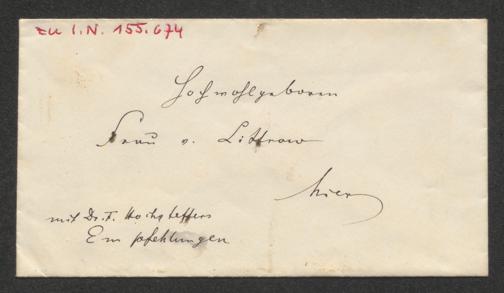 zu I.N. 155.674
Hochwohlgeboren
Frau v. Littrow
hier
mit Dr. F. Hochstetters
Empfehlungen